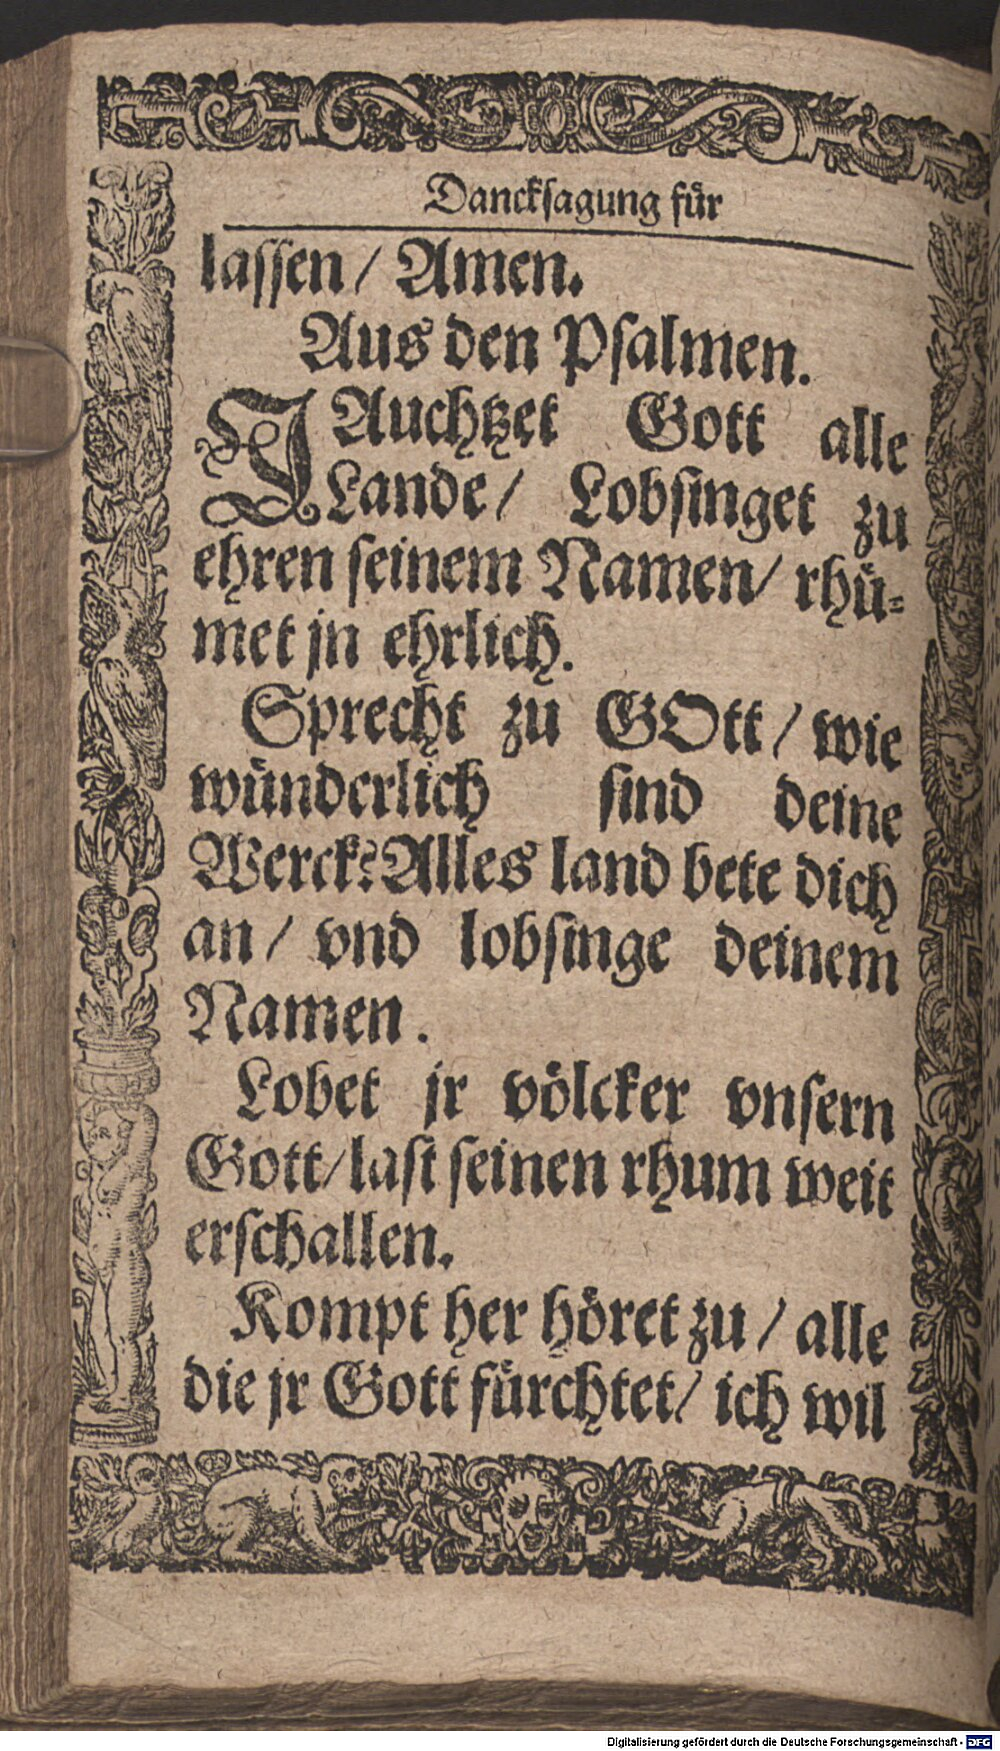 Dancksagung für
lassen / Amen.
Aus den Psalmen.
JAuchtzet Gott alle
Lande / Lobsinget zu
ehren seinem Namen / rhü-
met jn ehrlich.
Sprecht zu GOtt / wie
wünderlich sind deine
Werck? Alles land bete dich
an / vnd lobsinge deinem
Namen.
Lobet jr völcker vnsern
Gott / last seinen rhum weit
erschallen.
Kompt her höret zu / alle
die jr Gott fürchtet / ich wil
Digitalisierung gefördert durch die Deutsche Forschungsgemeinschaft - DFG